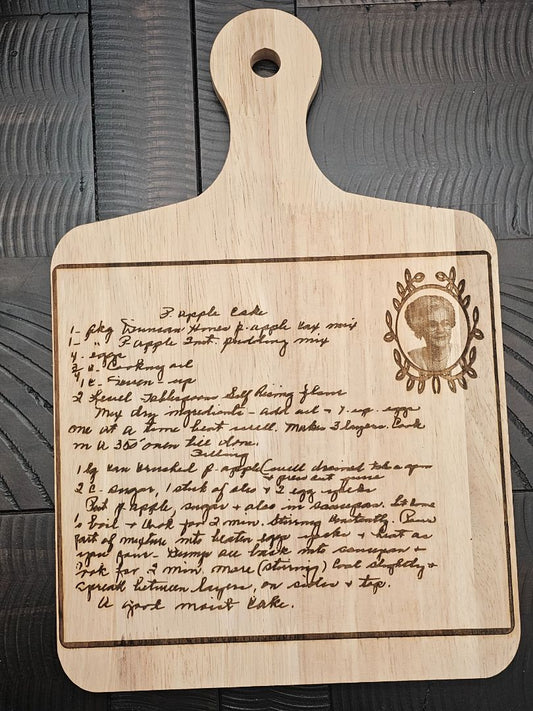 P. apple Cake
1 - pkg Duncan Hines p. apple Cake mix
1 - " P apple Inst. pudding mix
4 - eggs
C. Cooking oil
1 C - Seven - up
2 Level Tablespoons Self Rising Flour
Mix dry ingredients - add oil + 7-up - eggs
one at a time beat well. Makes 3 layers. Cook
in a 350° oven till done.
Filling
1 lg can crushed p. apple (well drained take a spoon
+ press out juice
2 C - sugar, 1 stick of oleo + 2 egg yolks
Put p. apple, sugar + oleo in saucepan. Let come
to boil + Cook for 2 min. Stirring Constantly. Pour
part of mixture into beaten egg yolks + beat as
you pour - Dump all back into saucepan +
cook for 2 min. more (stirring) Cool slightly +
spread between layers, on sides + top.
A good moist Cake.